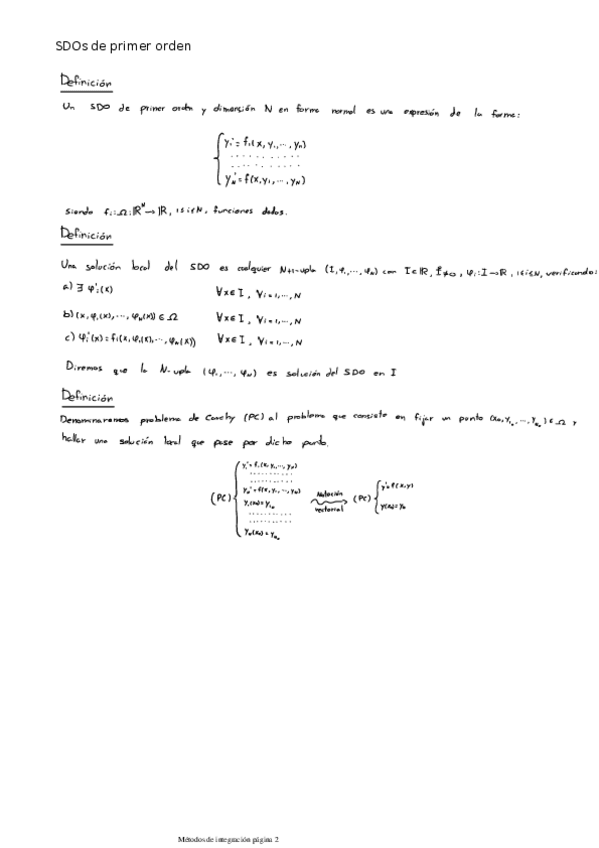 SDOs de primer orden
Definición
Un SDO de primer orden y dimensión N en forma normal es una expresión de la forma:
y₁' = f₁(x, y₁, ..., yₙ)
............
y'_N = f(x, y₁, ..., y_N)
siendo fᵢ: Ω: ℝᴺ → ℝ, 1≤i≤N, funciones dadas.
Definición
Una solución local del SDO es cualquier N+1-upla (I, φ₁, ..., φₙ) con I⊂ℝ, I̊≠∅, φᵢ: I→ℝ, 1≤i≤N, verificando:
a) ∃ φ'ᵢ(x) ∀x∈I, ∀i=1,...,N
b) (x, φ₁(x), ..., φₙ(x)) ∈ Ω ∀x∈I, ∀i=1,...,N
c) φᵢ'(x) = fᵢ(x, φ₁(x), ..., φₙ(x)) ∀x∈I, ∀i=1,...,N
Diremos que la N-upla (φ₁, ..., φ_N) es solución del SDO en I
Definición
Denominaremos problema de Cauchy (PC) al problema que consiste en fijar un punto (x₀, y₁₀, ..., yₙ₀) ∈ Ω y
hallar una solución local que pase por dicho punto.
(PC) { y₁' = f₁(x, y₁, ..., yₙ)
............
yₙ' = f(x, y₁, ..., yₙ)
y₁(x₀) = y₁₀
............
yₙ(x₀) = yₙ₀
Notación vectorial
(PC) { y' = f(x, y)
y(x₀) = y₀
Métodos de integración página 2